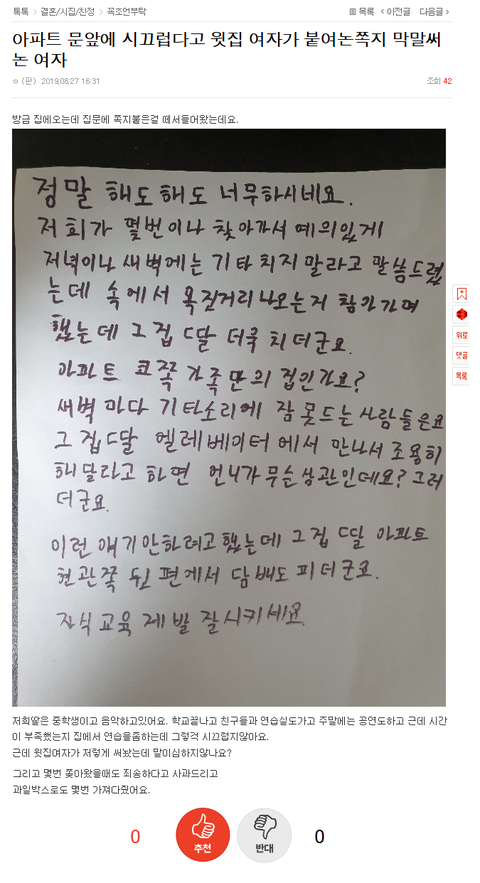 톡톡 > 결혼/시집/친정 > 꼭조언부탁
목록 < 이전글 다음글 >
아파트 문앞에 시끄럽다고 윗집 여자가 붙여논쪽지 막말써
논 여자
ㅇ (판) 2019.08.27 16:31
조회 42
방금 집에오는데 집문에 쪽지붙은걸 떼서들어왔는데요.
정말 해도해도 너무하시네요.
저희가 몇번이나 찾아가서 예의있게
저녁이나 새벽에는 기타치지말라고 말씀드렸
는데 속에서 욕짓거리나오는거 참아가며
했는데 그집 ㄸ달 더욱 치더군요.
아파트 코쪽가족만의 집인가요?
새벽마다 기타소리에 잠못드는사람들은요
그집ㄸ달 엘레베이터에서 만나서 조용히
해달라고 하면 언니가무슨상관인데요? 그러
더군요.
이런 얘기안하려고했는데 그집 ㄸ달 아파트
현관쪽 뒷편에서 담배도 피더군요.
자식교육 제발 잘시키세요
위로
댓글
목록
저희딸은 중학생이고 음악하고있어요. 학교끝나고 친구들과 연습실도가고 주말에는 공연도하고 근데 시간
이 부족했는지 집에서 연습을좀하는데 그렇걱 시끄럽지않아요.
근데 윗집여자가 저렇게 써놨는데 말이심하지않나요?
그리고 몇번 쫒아왔을때도 죄송하다고 사과드리고
과일박스로도 몇번 가져다줬어요.
0 추천 반대 0